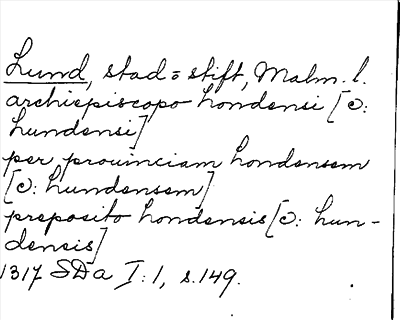 Lund, stad = stift, Malm. l.
archiepiscopo Londensi [ɔ:
Lundensi]
per prouinciam Londensem
[ɔ: Lundensem]
preposito Londensis [ɔ: Lun-
densis]
1317 SDa I:1, s.149.